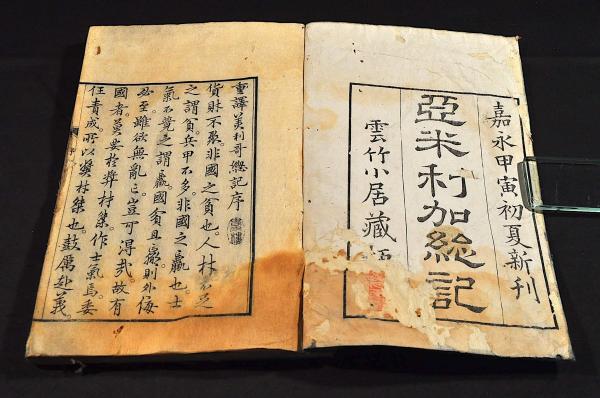 嘉永甲寅初夏新刊
亞米利加総記
雲竹小居藏
重譯美利哥緫記序
貨財不聚。非國之貧也。人材不足
之謂貧。兵甲不多。非國之羸也。士
氣不競之謂羸。國貧且羸。則外侮
必至。雖欲無亂亡。豈可得哉。故有
國者莫要於奬材桀。作士氣焉。委
任責成。所以奬材桀也。鼓厲赴義。